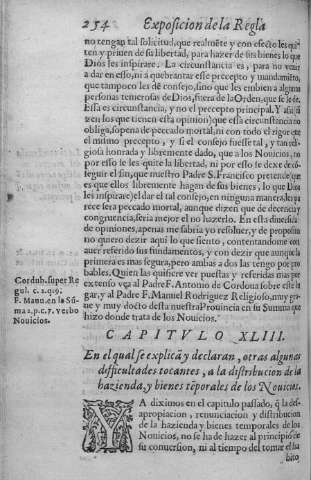 254 Exposicion de la Regla
no tengan tal solicitud, que realmẽte y con efecto les qui
ten y priuen de su libertad, para hazer de sus bienes lo que
Dios les inspirare. La circunstancia es, para no venir
a dar en esso, ni a quebrantar esse precepto y mandamiẽto,
que tampoco les dẽ consejo, sino que les embien a algunas
personas temerosas de Dios, fuera de la Orden, que se le dẽ.
Esta es circunstancia, y no el precepto principal. Y assi
en los que tienen esta opinion) que esta circunstancia no
obliga, so pena de peccado mortal, ni con todo el rigor que
el mismo precepto, y si el consejo fuesse tal, y tan reli
giosa honrada y libremente dado, que a los Nouicios, ni
por esso se les quite la libertad, ni por esso se dexe de cõ
seguir el fin, que nuestro Padre S. Francisco pretende que
es que ellos libremente hagan de sus bienes, lo que Dios
les inspirare) el dar el tal consejo, en ninguna manera, les pa
rece sera peccado mortal, aunque dizen que de decencia y
congruencia, seria mejor el no hazerlo. En esta diuersidad
de opiniones, apenas me sabria yo resoluer, y de proposito
no quiero dezir aqui lo que siento, contentandome con
auer referido sus fundamentos, y con dezir que aunque la
primera es mas segura, pero ambas a dos las tengo por pro
bables. Quien las quisiere ver puestas y referidas mas por
extenso vea al Padre F. Antonio de Cordoua sobre este lu
gar, y al Padre F. Manuel Rodriguez Religioso, muy gra-
ue y muy docto desta nuestra Prouincia en su Summa que
hizo donde trata de los Nouicios.
Cordub. super Re
gul. c. 2. q. 9.
F. Manu. en la Sũ
ma 2. p. c. 7. verbo
Nouicios.
CAPITVLO XLIII.
En el qual se explicã y declaran, otras algunas
difficultades tocantes, a la distribucion de la
hazienda, y bienes tẽporales de los Nouicios.
YA diximos en el capitulo passado, q̃ la des-
apropiacion, renunciacion y distribucion
de la hazienda y bienes temporales de los
Nouicios, no se ha de hazer al principio de
su conuersion, ni al tiempo del tomar el ha
bito